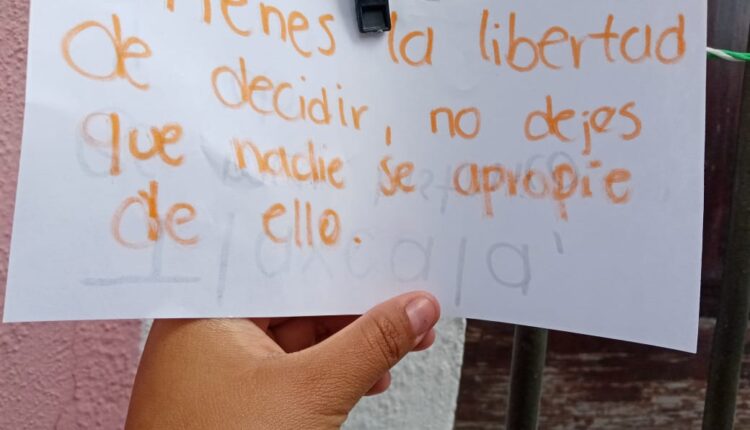 Tienes la libertad
de decidir, no dejes
que nadie se apropie
de ello.